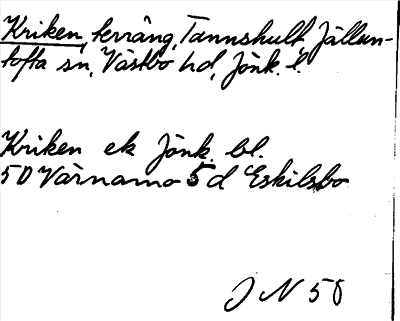 Kriken, terräng, Tannshult Jällun-
tofta sn, Västbo hd, Jönk. l.
Kriken ek Jönk. bl.
5D Värnamo 5d Eskilsbo
J N 58